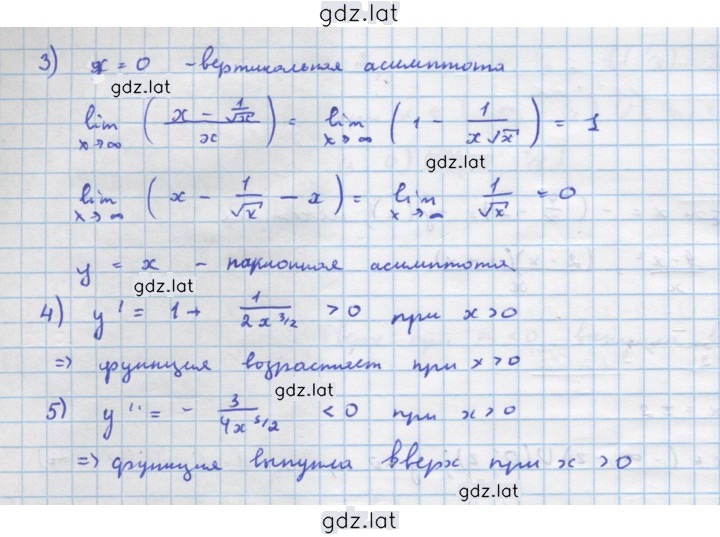 gdz.lat
3) x = 0 - вертикальная асимптота
gdz.lat
lim x→∞ ( (x - 1/√x) / x ) = lim x→∞ ( 1 - 1/(x√x) ) = 1
gdz.lat
lim x→∞ ( x - 1/√x - x ) = lim x→∞ 1/√x = 0
y = x - наклонная асимптота
gdz.lat
4) y' = 1 + 1/(2x^{3/2}) > 0 при x > 0
=> функция возрастает при x > 0
gdz.lat
5) y'' = - 3/(4x^{5/2}) < 0 при x > 0
=> функция выпукла вверх при x > 0
gdz.lat
gdz.lat